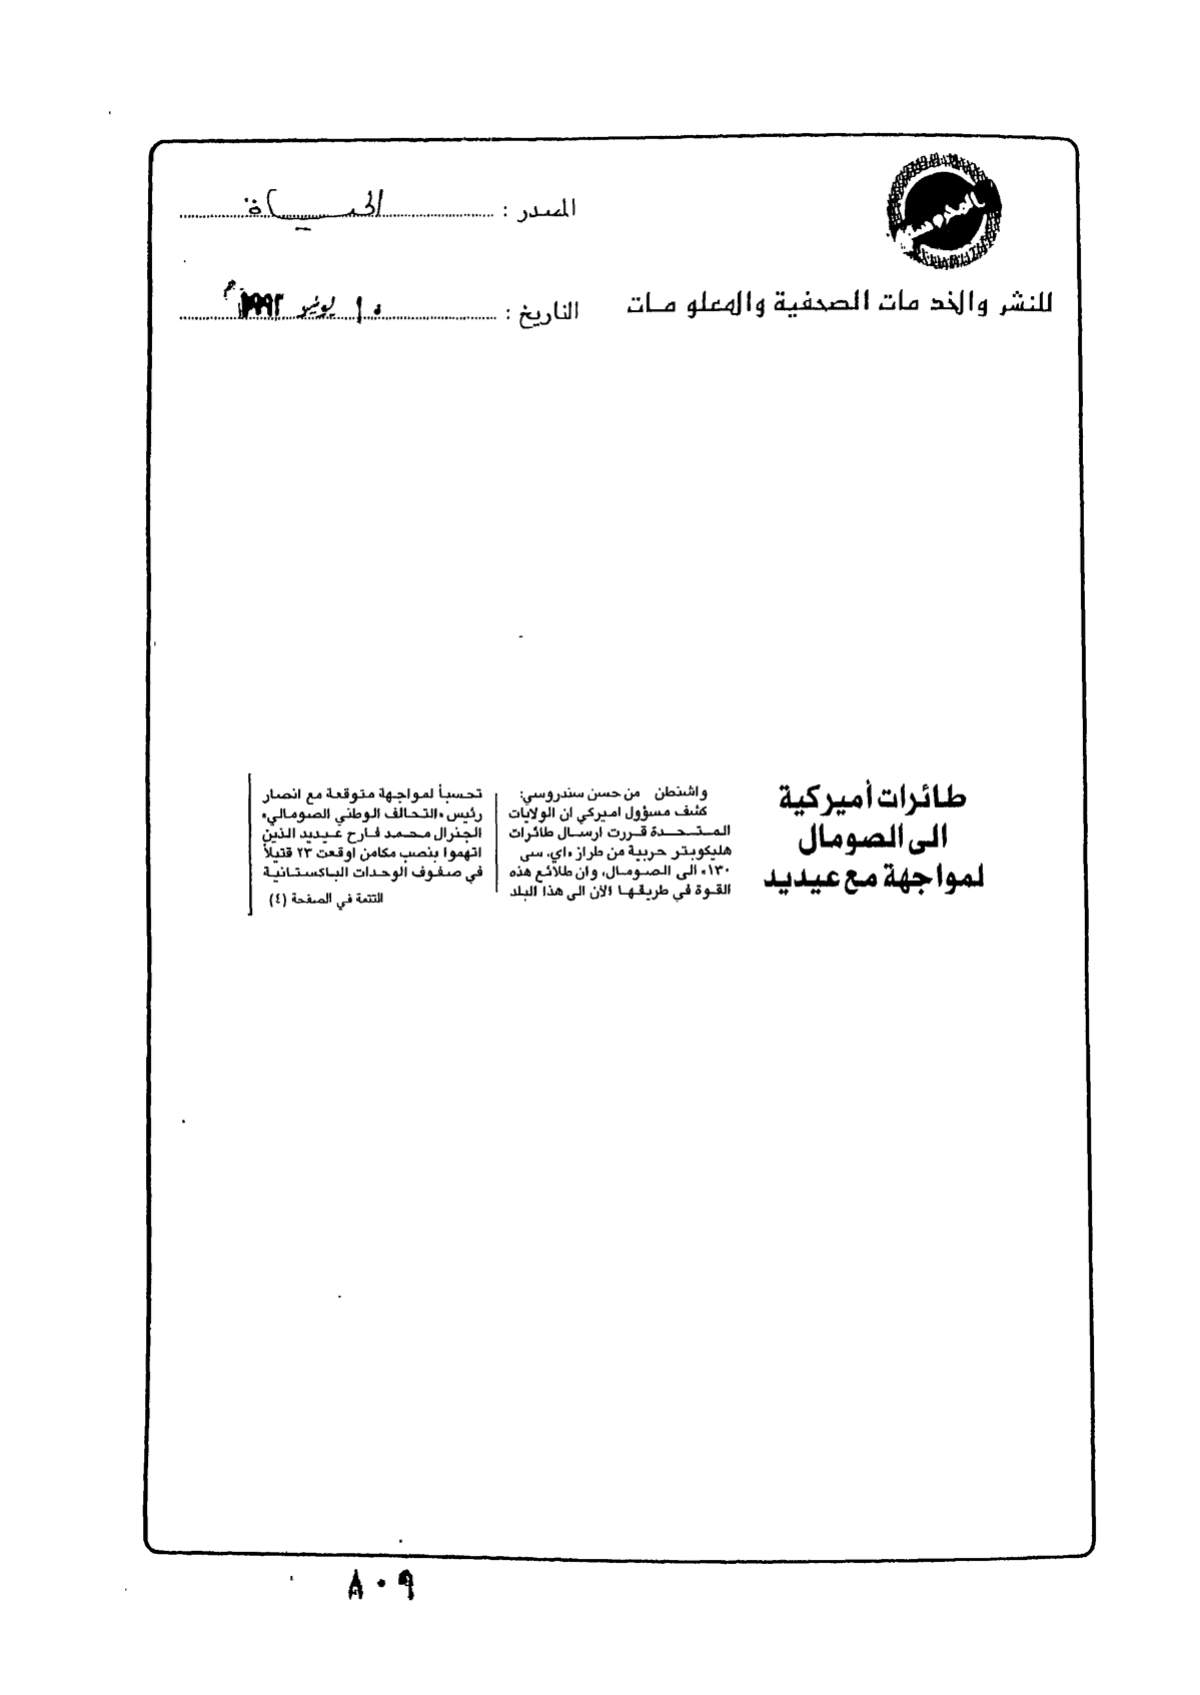 المصدر : الحياة
للنشر والخد مات الصحفية والمعلو مات
التاريخ : ١٠ يونيو ١٩٩٣
طائرات أميركية
الى الصومال
لمواجهة مع عيديد
واشنطن من حسن سندروسي:
كشف مسؤول اميركي ان الولايات
المتحدة قررت ارسال طائرات
هليكوبتر حربية من طراز «اي. سي
١٣٠» الى الصومال، وان طلائع هذه
القوة في طريقها الآن الى هذا البلد
تحسباً لمواجهة متوقعة مع انصار
رئيس «التحالف الوطني الصومالي»
الجنرال محمد فارح عيديد الذين
اتهموا بنصب مكامن اوقعت ٢٣ قتيلاً
في صفوف الوحدات الباكستانية
التتمة في الصفحة (٤)
٨٠٩